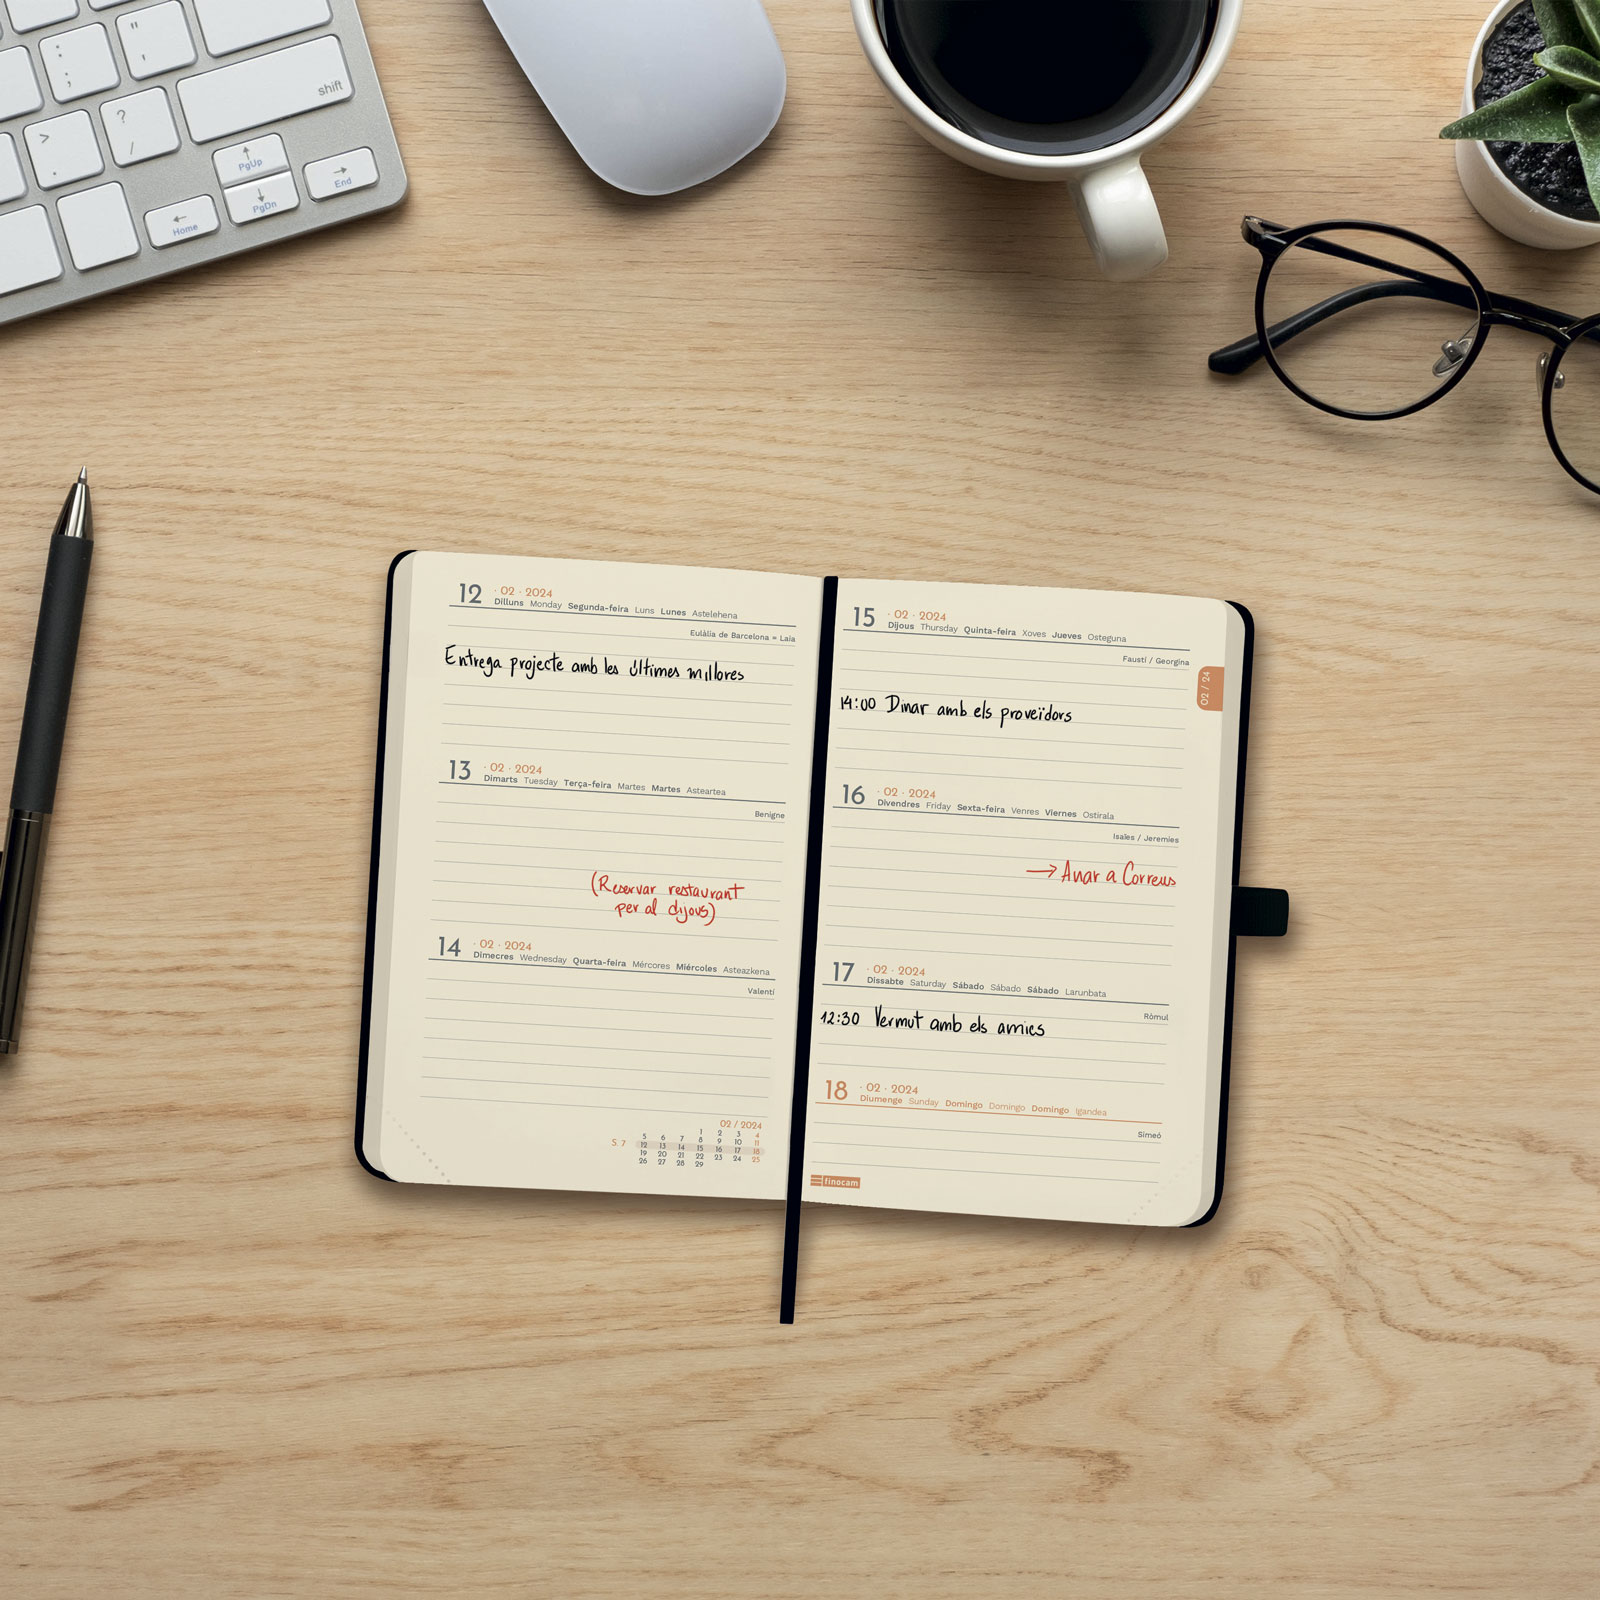 " '
: ;
shift
? /
> .
PgUp
PgDn
Home
End
12 · 02 · 2024
Dilluns Monday Segunda-feira Luns Lunes Astelehena
Eulàlia de Barcelona = Laia
Entrega projecte amb les últimes millores
13 · 02 · 2024
Dimarts Tuesday Terça-feira Martes Martes Asteartea
Benigne
(Reservar restaurant
per al dijous)
14 · 02 · 2024
Dimecres Wednesday Quarta-feira Mércores Miércoles Asteazkena
Valentí
02 / 2024
1 2 3 4
5 6 7 8 9 10 11
S. 7 12 13 14 15 16 17 18
19 20 21 22 23 24 25
26 27 28 29
15 · 02 · 2024
Dijous Thursday Quinta-feira Xoves Jueves Osteguna
Faustí / Georgina
02 / 24
14:00 Dinar amb els proveïdors
16 · 02 · 2024
Divendres Friday Sexta-feira Venres Viernes Ostirala
Isaïes / Jeremies
→ Anar a Correus
17 · 02 · 2024
Dissabte Saturday Sábado Sábado Sábado Larunbata
Ròmul
12:30 Vermut amb els amics
18 · 02 · 2024
Diumenge Sunday Domingo Domingo Domingo Igandea
Simeó
finocam